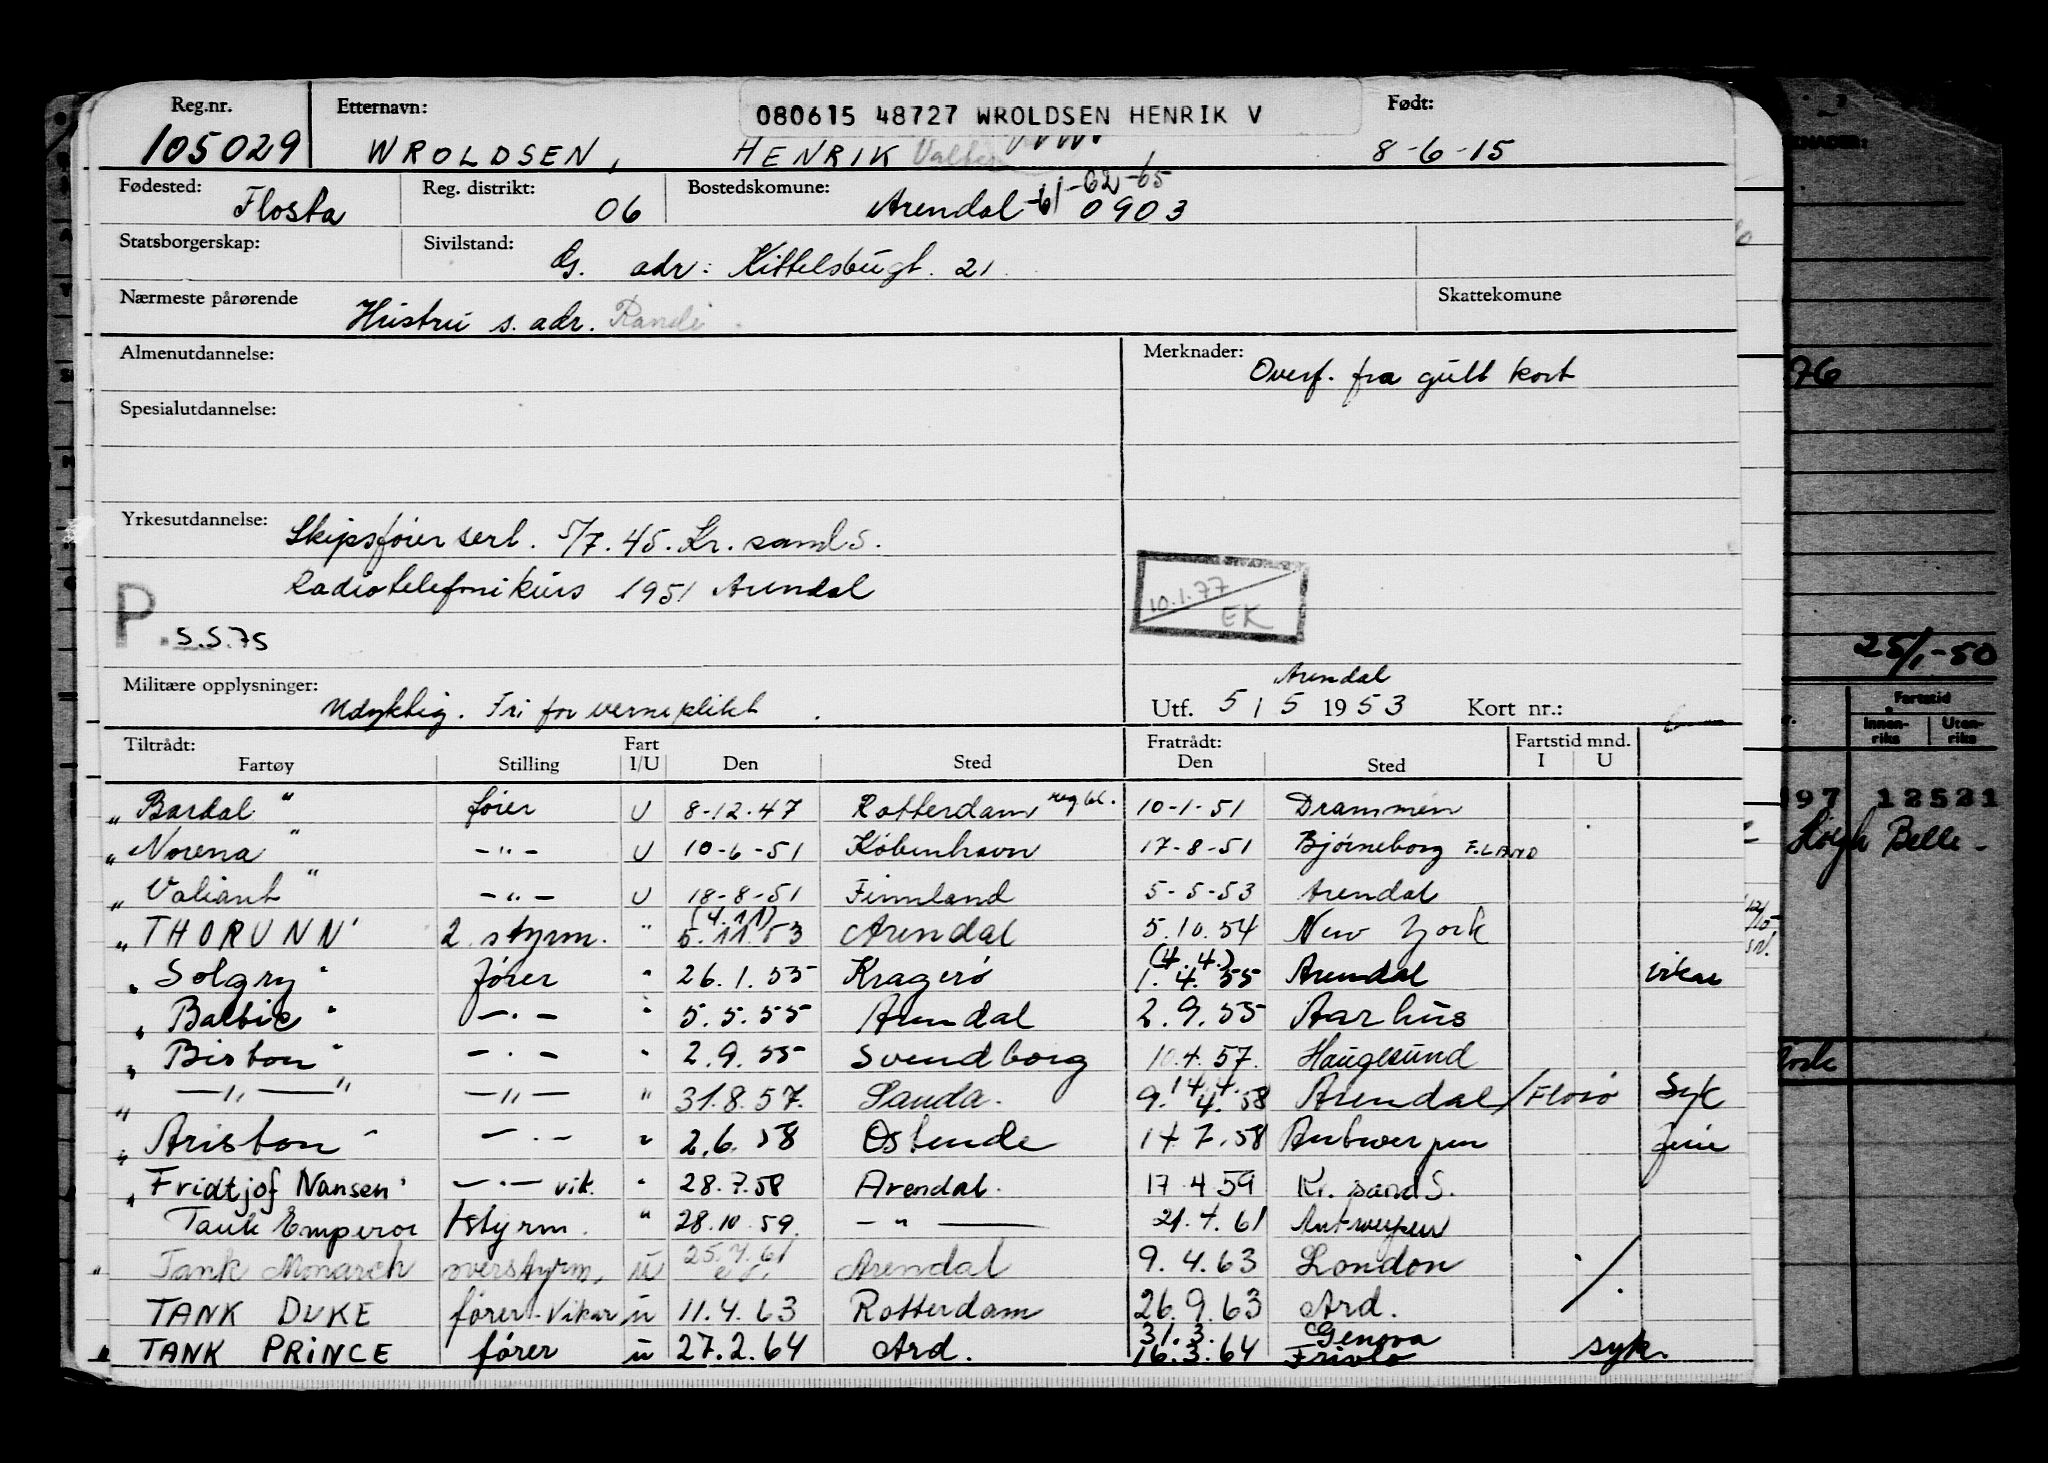 Reg.nr. Etternavn: 080615 48727 WROLDSEN HENRIK V Født:
105029 WROLDSEN, HENRIK 8-6-15
Fødested: Flosta Reg. distrikt: 06 Bostedskomune: Arendal -61 -62 -65 0903
Statsborgerskap: Sivilstand: G. adr: Kittelsbugt. 21
Nærmeste pårørende Hustru s. adr. Randi Skattekomune
Almenutdannelse: Merknader: Overf. fra gult kort
Spesialutdannelse:
Yrkesutdannelse: Skipsfører sert. 5/7.45. Kr. sand S.
Radiotelefonikurs 1951 Arendal
10.1.77 EK
P. 5.5.75
Militære opplysninger: Udyktig. Fri for verneplikt. Arendal
Utf. 5 / 5 1953 Kort nr.:
25/1-50
Tiltrådt: Fart Fratrådt: Fartstid mnd.
Fartøy Stilling I/U Den Sted Den Sted I U
"Bardal" fører U 8-12-47 Rotterdam 10-1-51 Drammen
"Norena" -"- U 10-6-51 København 17-8-51 Bjørneborg F.LAND
"Valiant" -"- U 18-8-51 Finnland 5-5-53 Arendal
"THORUNN" 2. styrm. " (4.11) 5.11.53 Arendal 5.10.54 New York
"Solgry" fører " 26.1.55 Kragerø (4.4.) 1.4.55 Arendal vikar
"Baltic" -"- " 5.5.55 Arendal 2.9.55 Aarhus
"Biston" -"- " 2.9.55 Svendborg 10.4.57. Haugesund
" -"- " -"- " 31.8.57. Sauda. 14.4. 9.4.58 Arendal/Florø Syk
"Ariston" -"- " 2.6.58 Ostende 14.7.58 Antwerpen ferie
"Fridtjof Nansen" -"- vik. " 28.7.58 Arendal. 17.4.59 Kr. sand S.
Tank Emperor 1styrm. " 28.10.59. -"- 21.4.61 Antwerpen
" Tank Monarch overstyrm. u 25.4.61 Arendal 9.4.63 London
TANK DUKE fører-Vikar u 11.4.63 Rotterdam 26.9.63 Ard.
" TANK PRINCE fører u 27.2.64 Ard. 31.3. Genova
16.3.64 syk.
Fartstid
Innen-riks Uten-riks
197 12521
Høegh Belle